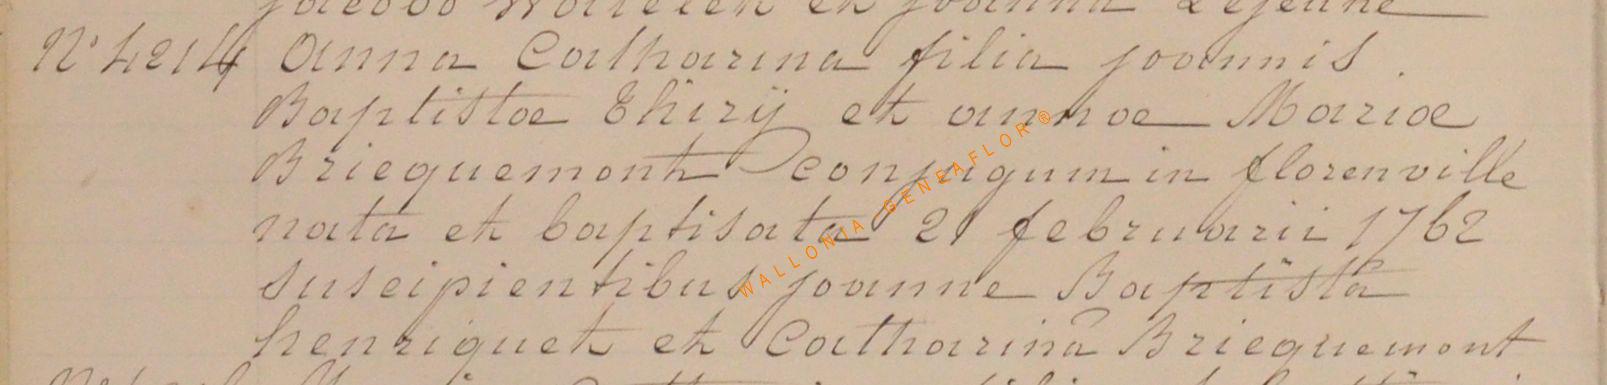 jacobo Watelet et joanna Lejeune
N° 4214 Anna Catharina filia joannis
Baptistae Thirÿ et annae Mariae
Briequemont conjugum in florenville
nata et baptisata 21 februarii 1762
suscipientibus joanne Baptista
henriquet et Catharina Briequemont
WALLONIA-GENEAFLOR®